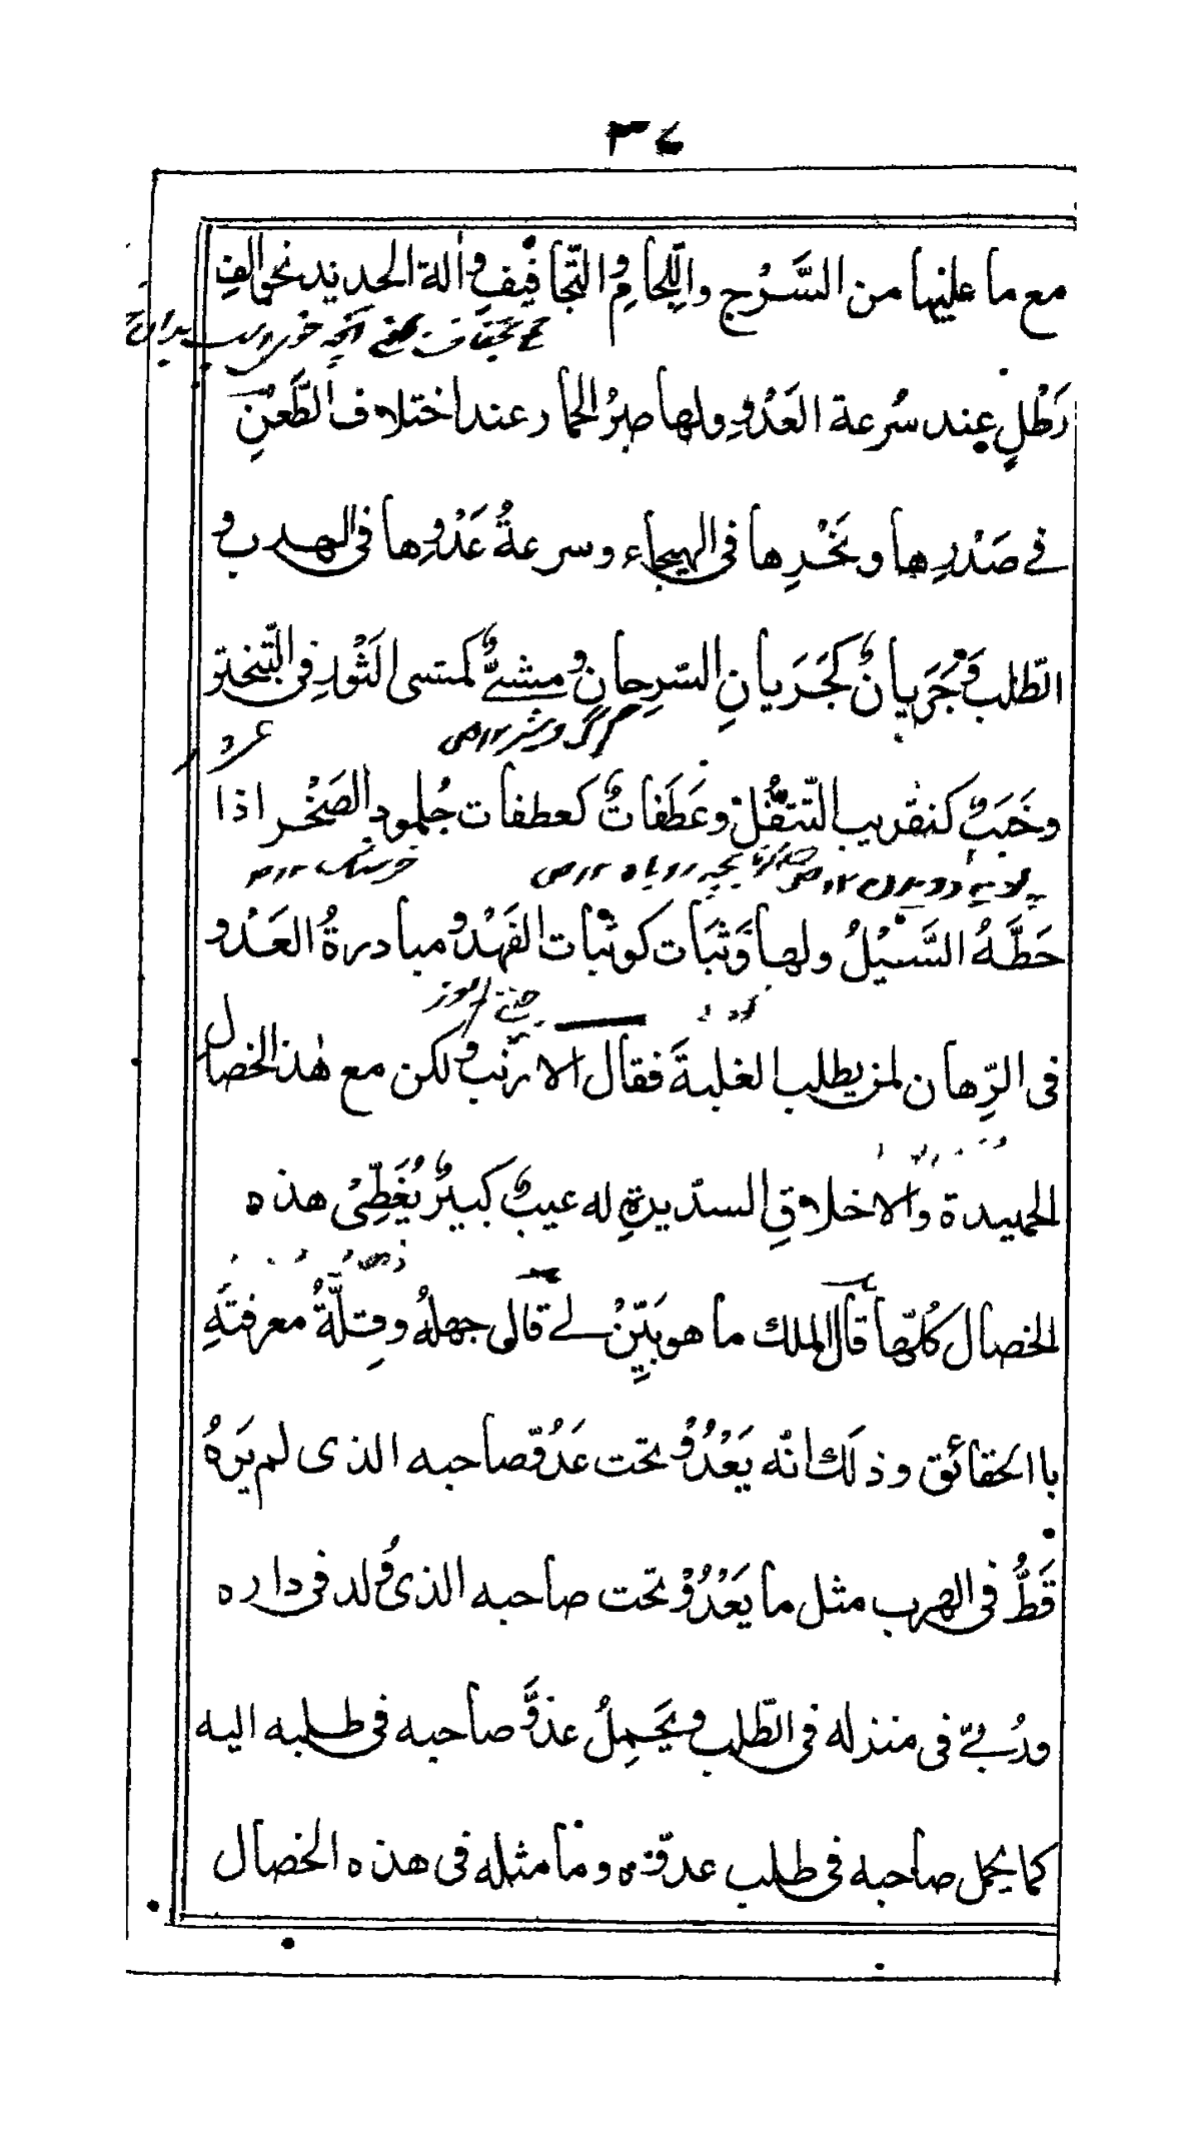 ٣٤
مع ما عليها من السَّرْج واللِّجامِ والتّجافيف وألة الحديد نحو الفِ
رَطْلٍ عند سُرعة العَدْوِ ولها صبرُ الحمار عند اختلاف الطَّعْنِ
فى صَدْرِها ونَحْرِها فى الهيجاء وسرعةُ عَدْوِها فى الهرب و
الطّلب وَجَرَيانٌ كَجَرَيانِ السّرِحانِ ومشىٌّ كمشى الثَوْرِ فى التّبختر
گرگ وشیر ١٢ ص
وخَبَبٌ كتقريب التّتفُلِ وعَطَفاتٌ كعطفات جُلمود الصَخْر اذا
بچه روباه ١٢ ص
حَطَّهُ السَّيْلُ ولها وَثَبَات كوثبات الفَهْد ومبادرةُ العَدْو
فى الرِّهان لمن يطلب الغلبةَ فقال الارنب ولكن مع هذه الخصال
الحميدة والاخلاقِ السدّيدةِ له عيبٌ كبيرٌ يُغَطِّىْ هذه
الخصال كُلّها قال الملك ما هو بَيِّنْ لے قال جهلهُ وقِلَّةُ معرفتهِ
باالحقائق وذلك انّه يَعْدُوْ تحت عَدُوّصاحبه الذى لم يَرَهُ
قَطُّ فى الهرب مثل ما يَعْدُوْ تحت صاحبه الذى وُلد فى داره
ورُبِّىَ فى منزله فى الطّلب ويَحمِلُ عذوَّ صاحبه فى طلبه اليه
كما يحمل صاحبه فى طلب عدوّه وما مثله فى هذه الخصال